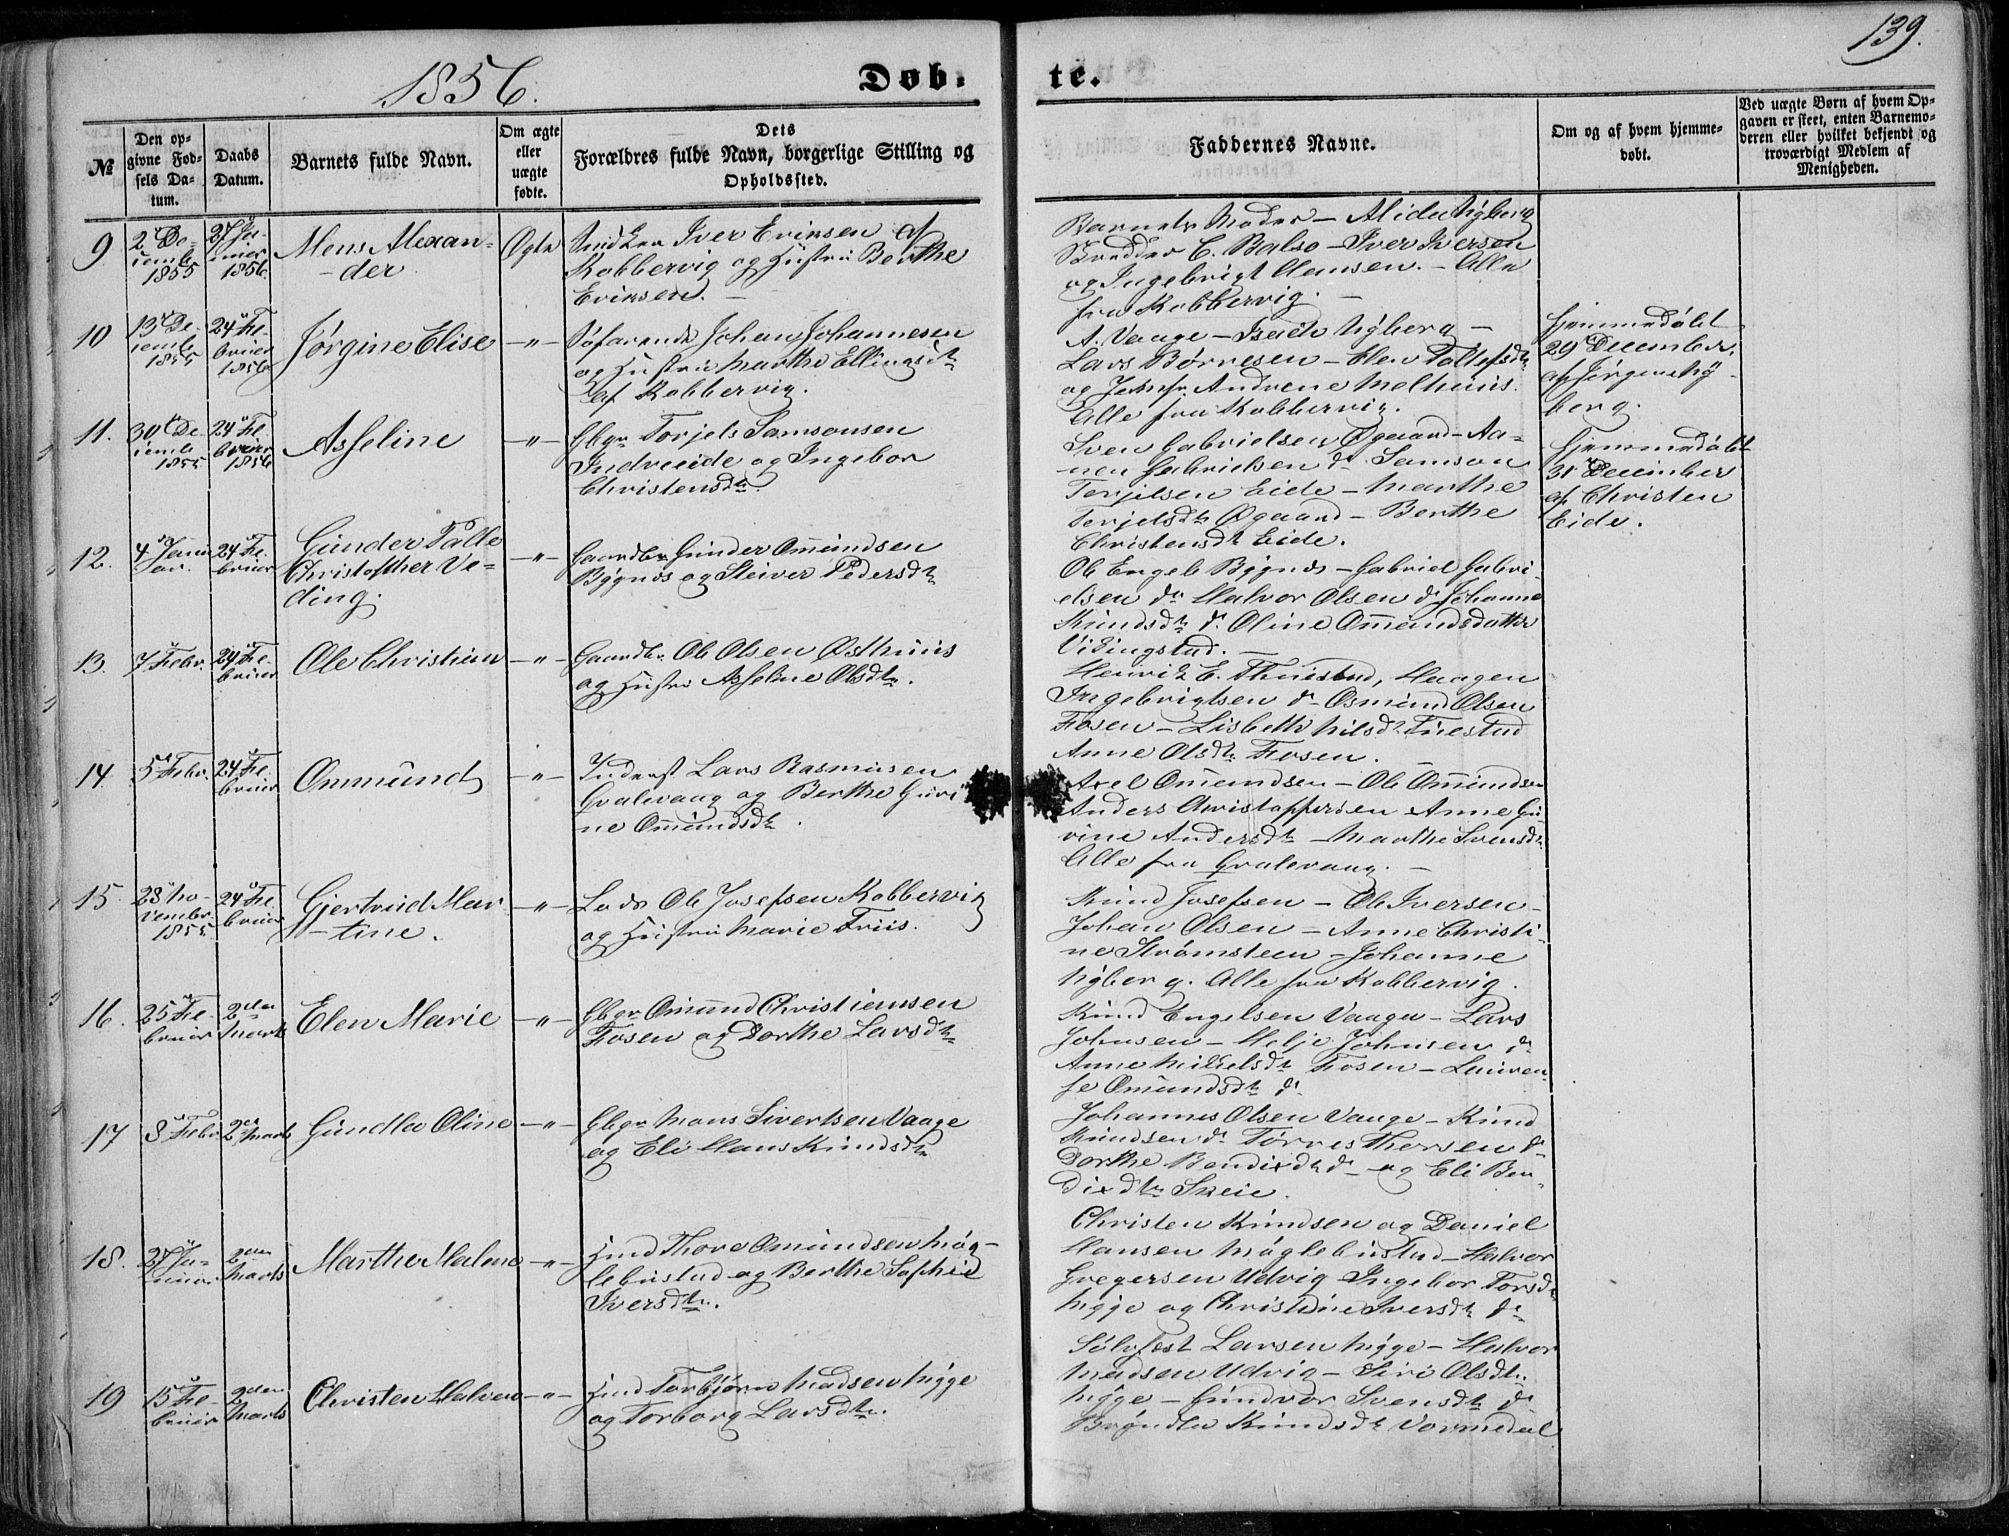 139.
1856.
Døb-
te.
№
Den op-
givne Fød-
sels Da-
tum.
Daabs
Datum.
Barnets fulde Navn.
Om ægte
eller
uægte
fødte.
Dets
Forældres fulde Navn, borgerlige Stilling og
Opholdssted.
Faddernes Navne.
Om og af hvem hjemme-
døbt.
Ved uægte Børn af hvem Op-
gaven er skeet, enten Barnemo-
deren eller hvilket bekjendt og
troværdigt Medlem af
Menigheden.
9
2 De-
cemb
1855
27 Ja-
nuar
1856
Mons Alexan-
-der
Ægte
Snidker Iver Eriksen af
Kobbervig og Hustru Berthe
Eriksen. -
Barnets Moder - Alida Nyberg
Skrædder C. Balso - Iver Iversen
og Ingebrigt Hansen. - Alle
fra Kobbervig. -
10
13 De-
cemb
1855
24 Fe-
bruar
1856
Jørgine Elise
-"-
Søfarende Johan Johannesen
og Hustru Marthe Ellingsdt
af Kobbervig.
A. Vaage - Isach Nyberg -
Lars Børresen - Elen Tollefsdt
og Jomfr. Andrene Melhuus.
Alle fra Kobbervig.
Hjemmedøbt
29 December
af Jørgen Ny-
berg.
11.
30 De-
cemb
1855
24 Fe-
bruar
1856
Asseline
-"-
Gbgr Torjels Samsonsen
Indreeide og Ingebor
Christensdt.
Sven Gabrielsen Øgaard - Aa-
nen Gabrielsen do Samson
Torjelsen Eide - Marthe
Torjelsdt Øgaard - Berthe
Christensdt Eide.
Hjemmedøbt
31 December
af Christen
Eide.
12.
4 Janu
ar.
24 Fe-
bruar
Gunder Palle
Christopher Ve-
ding.
-"-
Gaardbr Gunder Omundsen
Bygnes og Steiver Pedersdt
Ole Engels Bygnes - Gabriel Gabri-
elsen do Halvor Olsen do Johanne
Knudsdt do Oline Omundsdatter
Vikingstad. -
13.
7 Febr.
24 Fe-
bruar
Ole Christian
-"-
Gaardbr Ole Olsen Østhuus
og Hustru Asseline Olsdtr.
Henrik E. Thuestad, Haagen
Ingebrigtsen do Osmund Olsen
Fosen - Lisbeth Nilsdt Tuestad
Anne Olsdtr Fosen. -
14
5 Febr.
24 Fe-
bruar
Ommund
-"-
Inderst Lars Rasmusen
Gvalevaag og Berthe Guri
ne Omundsdt.
Axel Omundsen - Ole Omundsen
Anders Christoffersen Anne Gu-
rine Andersdt - Marthe Svensdt
Alle fra Gvalevaag. -
15.
28 No-
vembr
1855
24 Fe-
bruar
Gjertrud Mar
-tine.
-"-
Lods Ole Josefsen Kobbervig
og Hustru Marie Friis.
Knud Josefsen - Ole Iversen -
Johan Olsen - Anne Christi-
ne Strømsteen - Johanne
Nyberg. Alle fra Kobbervig.
16.
25 Fe-
bruar
2den
Marts
Elen Marie
-"-
Gbgr Omund Christiansen
Fosen og Dorthe Larsdt
Knud Engelsen Vaage - Lars
Johnsen - Helje Johnsen do
Anne Mikkelsdt Fosen - Lauren-
se Omundsdt do
17
8 Febr
2den Marts
Gundla Oline
-"-
Gbgr Mons Sivertsen Vaage
og Eli Hans Knudsdt
Johannes Olsen Vaage - Knud
Knudsen do Tørres Thorsen do
Dorthe Bendixdt do - og Eli Ben-
dixdtr Skeie.
18.
27 Ja-
nuar
2den
Marts
Marthe Malene
-"-
Hmd Thore Omundsen Møg-
lebustad og Berthe Sophie
Iversdtr.
Christen Knudsen og Daniel
Hansen Møglebustad - Halvor
Gregersen Udvig - Ingebor Torsdt
Nygge og Christine Iversdt do
19
15 Fe-
bruar
2den
Marts
Christen Halvor
-"-
Hmd Torbjørn Madsen Nygge
og Torborg Larsdtr.
Sølvfest Larsen Nygge - Halvor
Madsen Udvig - Siri Olsdtr.
Nygge - Gundvor Svensdt do
Brøndla Knudsdt Vormedal